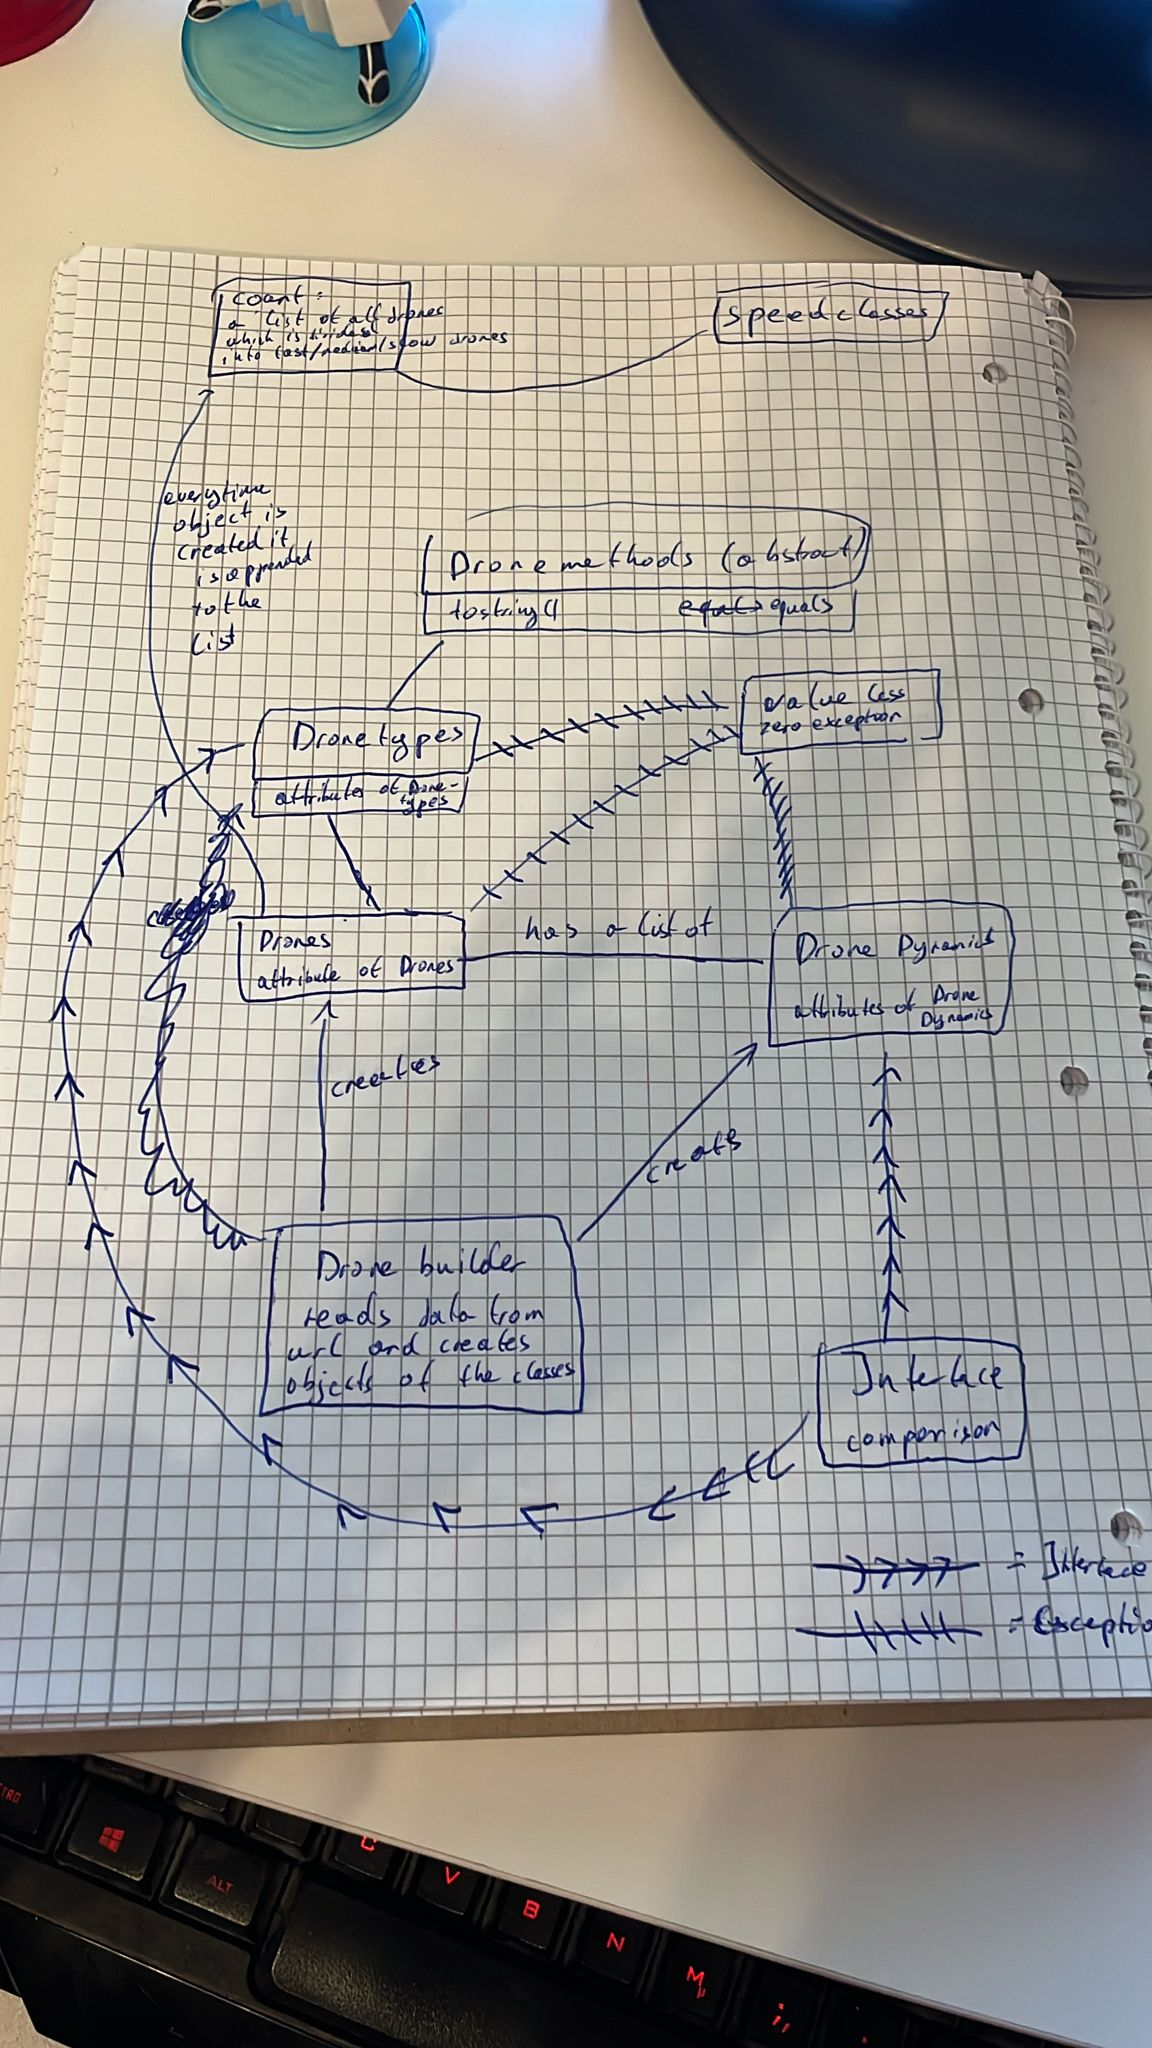 count :
a list of all drones
which is divided
into fast/medium/slow drones
speedclasses
everytime
object is
created it
is appended
to the
list
Drone methods (abstract)
tostring() equals
value less
zero exception
Drone types
attributes of Drone-
types
Drones
attribute of Drones
has a list of
Drone Dynamics
attributes of Drone
Dynamics
creates
create
Drone builder
reads data from
url and creates
objects of the classes
Interface
comparison
= Interface
= Exceptio
ALT
C
V
B
N
M
µ
;
,